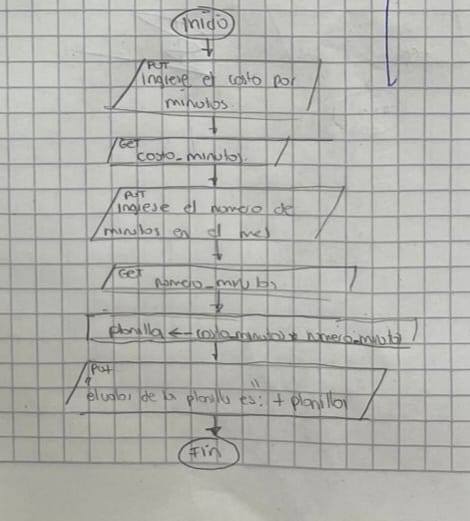 inicio
PUT
ingrese el costo por
minutos.
GET
costo_minutos.
PUT
ingrese el numero de
minutos en el mes
GET
numero_minutos
planilla ← costo_minutos * numero_minutos
PUT
"el valor de la planilla es:" + planilla
Fin